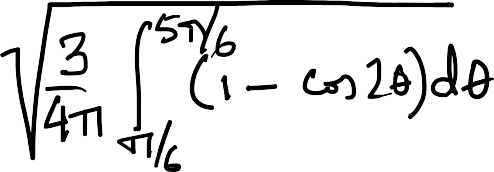 \sqrt{\frac{3}{4\pi} \int_{\pi/6}^{5\pi/6} (1 - \cos 2\theta) d\theta}